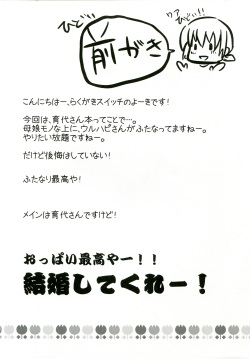 ひどい
前がき
ワァ ひどい!!
こんにちはー、らくがきスイッチのよーきです!
今回は、育代さん本ってことで…。
母娘モノな上に、ウルハピさんがふたなってますねー。
やりたい放題ですねー。
だけど後悔はしていない!
ふたなり最高や!
メインは育代さんですけど!
おっぱい最高やー!!
結婚してくれー!